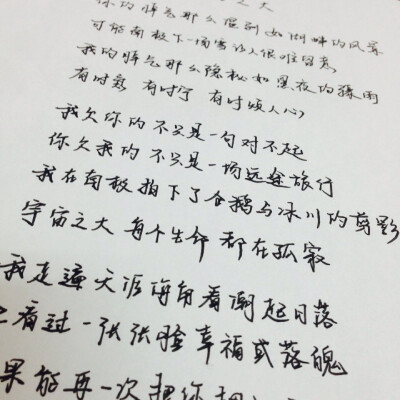 之大
你的悼念那么区别 如湖畔的风景
可能南极下一场雪让人很难留意
我的悼念那么隐秘如黑夜的骤雨
有时弯 有时宁 有时烦人心
我欠你的 不只是一句对不起
你欠我的 不只是一场远途旅行
我在南极拍下了企鹅与冰川的剪影
宇宙之大 每个生命 都在孤寂
我走遍天涯海角看潮起日落
看过一张张脸幸福或落魄
果能再一次把你